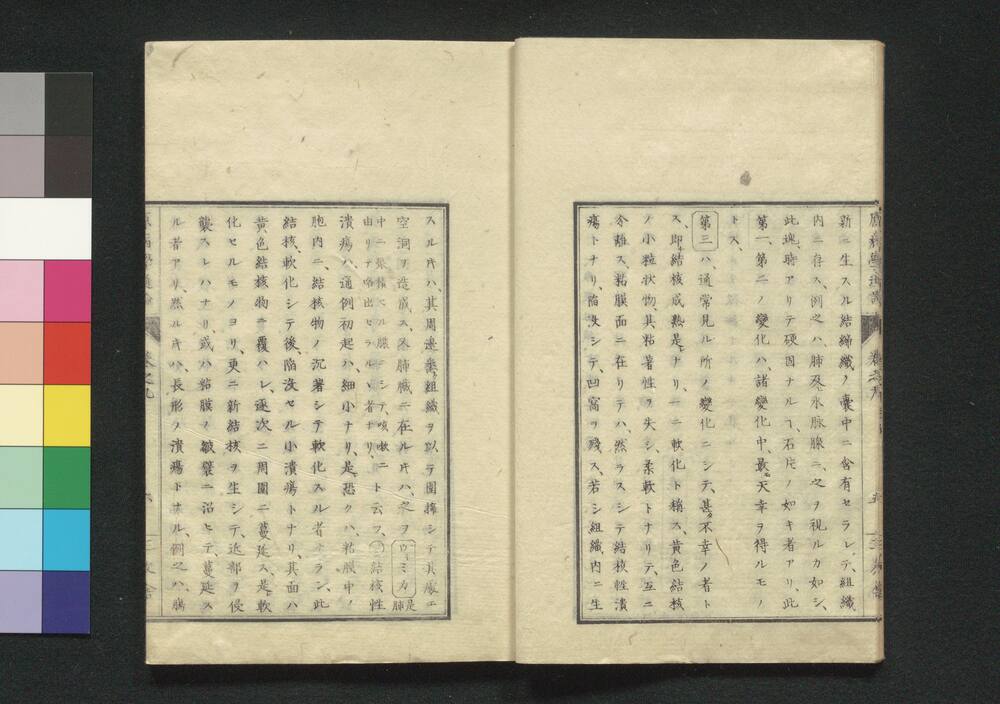 新ニ生スル結締織ノ嚢中ニ含有セラレ、テ組織
内ニ存ス、例之ハ肺及ヒ水脉腺ニ、之ヲ視ルカ如シ、
此塊、時アリテ硬固ナルヿ石片ノ如キ者アリ、此
第一、第二ノ變化ハ、諸變化中、最モ天幸ヲ得ルモノ
トス、
第三ハ、通常見ル所ノ變化ニシテ、甚タ不幸ノ者ト
ス、即チ結核成熟是ナリ、一ニ軟化ト稱ス、黄色結核
ノ小粒状物其粘著性ヲ失シ、柔軟トナリテ、互ニ
分離ス、粘膜面ニ在リテハ然ラスシテ結核性潰
瘍トナリ、陥没シテ、凹窩ヲ殘ス、若シ組織内ニ生
スル片ハ、其周邊組織ヲ以テ圍擁シテ其處ニ
空洞ヲ造成ス、 肺臓ニ在ル片ハ、之ヲ ウヲミカ 是肺
中ニ聚積スル膿ニシテ、咳嗽ニ
由リテ咯出セラルヽ者ナリ、ト云フ、㊂結核性
潰瘍ハ通例初起ハ、細小ナリ、是恐クハ、粘膜中ノ
胞内ニ、結核物ノ沉著シテ軟化スル者ナラン、此
結核、軟化シテ後、陥没セル小潰瘍トナリ、其面ハ
黄色結核物ニ覆ハレ、逐次ニ周圍ニ蔓延ス、是軟
化セルモノヨリ、更ニ新結核ヲ生シテ、近部ヲ侵
襲スレハナリ、或ハ粘膜ノ皺襞ニ沿ヒテ、蔓延ス
ル者アリ、然ル片ハ、長形ノ潰瘍トナル、例之ハ、膓